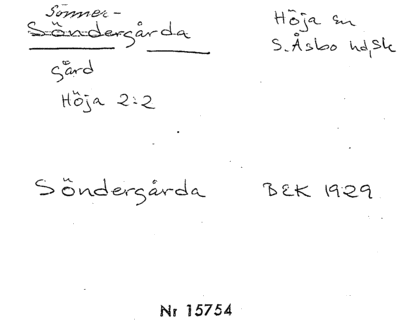 Sönner-
Söndergårda
Höja sn
S. Åsbo hd, Sk
gård
Höja 2:2
Söndergårda
BEK 1929
Nr 15754